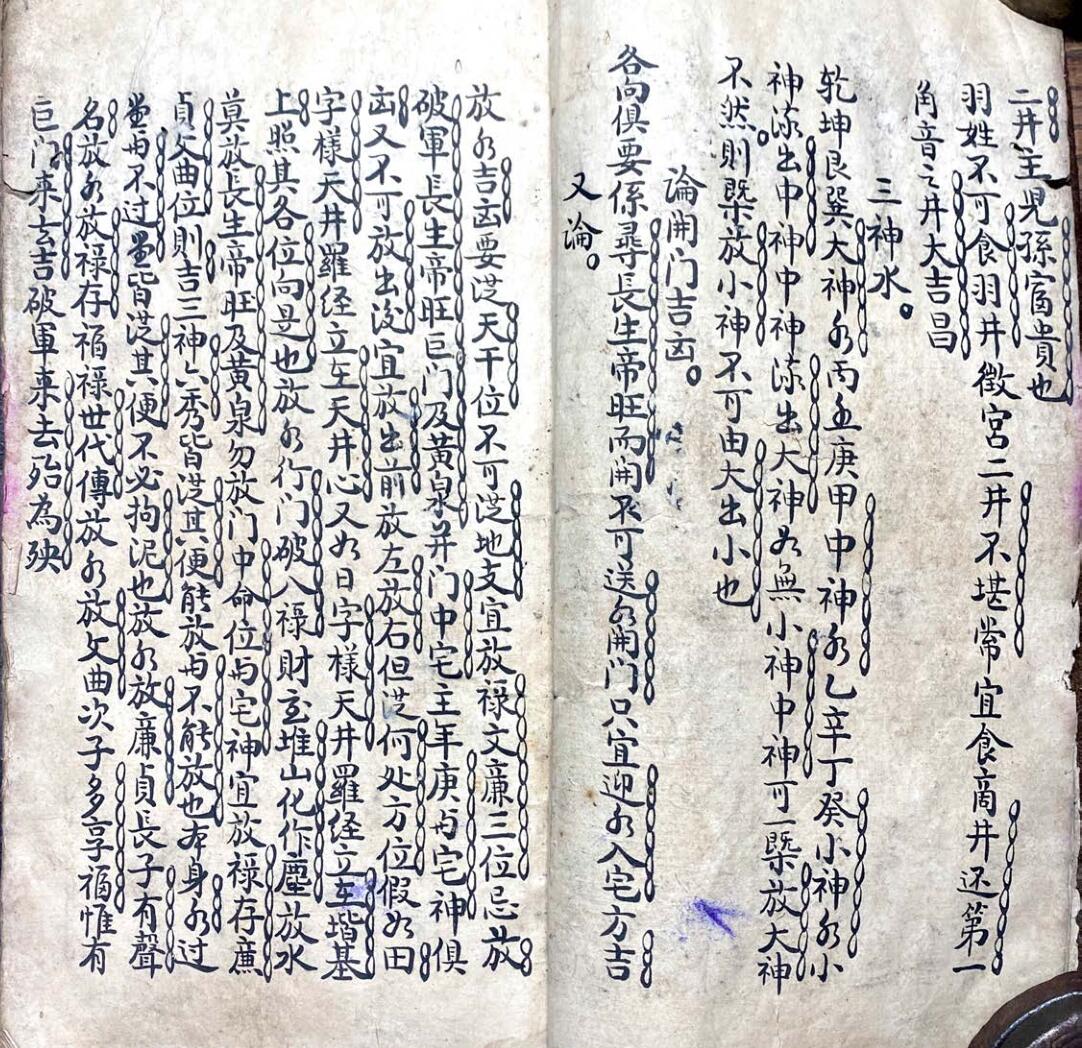 二井主児孫富貴也
羽姓不可食羽井徵宮二井不堪常宜食商井还第一
角音之井大吉昌
三神水
乾坤艮巽大神水丙壬庚甲中神水乙辛丁癸小神水小
神流出中神中神流出大神如無小神中神可一槩放大神
不然則槩放小神不可由大出小也
論開门吉凶
各向俱要係尋長生帝旺而開不可送水開门只宜迎水入宅方吉
又論
放水吉凶要从天干位不可从地支宜放禄文亷三位忌放
破軍長生帝旺巨门及黄泉并门中宅主年庚与宅神俱
凶又不可放出後宜放出前放左放右但从何处方位假如田
字樣天井羅经立在天井心又如日字樣天井羅经立在堦基
上照其各位向是也放水行门破入禄財玄堆山化作塵放水
莫放長生帝旺及黄泉勿放门中命位与宅神宜放禄存亷
貞文曲位則吉三神六秀皆从其便能放与不能放也本身水过
堂与不过堂皆从其便不必拘泥也放水放亷貞長子有聲
名放水放禄存福禄世代傳放水放文曲次子多享福惟有
巨门来去吉破軍来去殆為殃